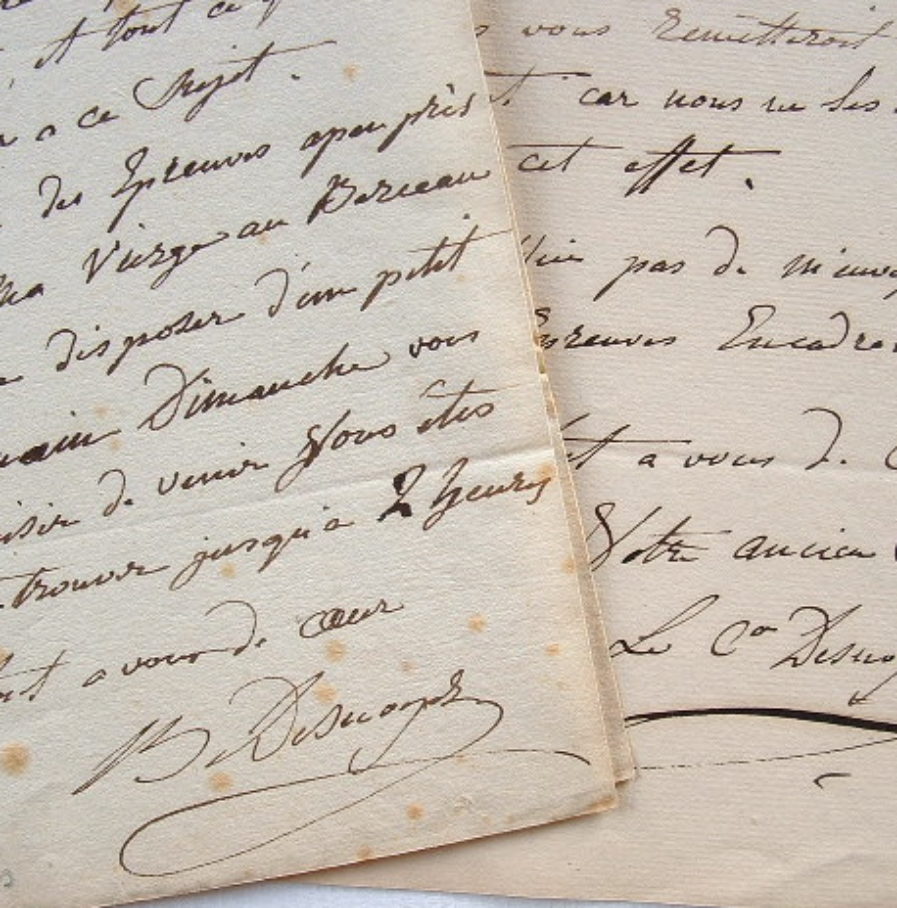 et tout ce
a ce Sujet.
des Epreuves apeuprès
Vierge au Berceau
disposer d'un petit
Dimanche vous
de venir Vous êtes
trouver jusqu'a 2 heures
a vous de cœur
B Desnoyers
vous remettroit
car nous ne les
cet effet.
pas de m'envoy
Epreuves Encadre
a vous de
Votre ancien
Le Con Desnoy